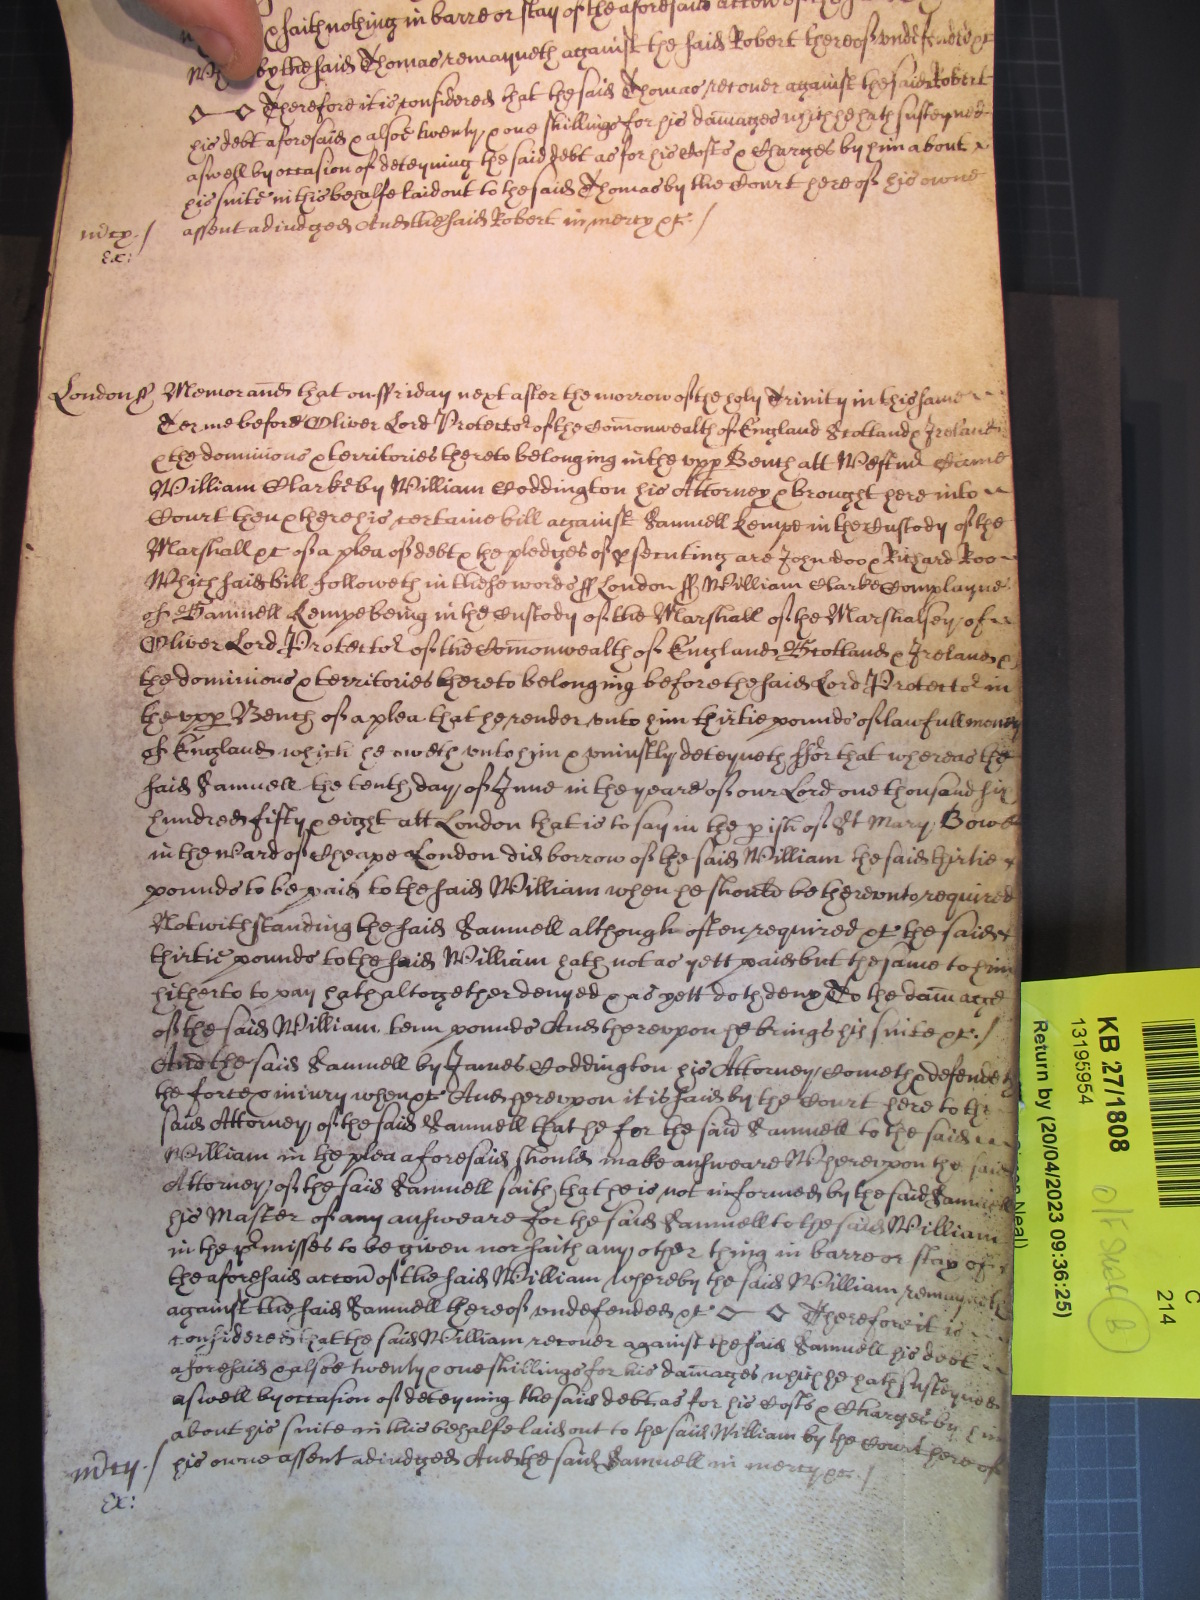 saith nothing in barre or stay of the aforesaid accon of the said
by the said Thomas remayneth against the said Robert thereof undefended &c
Therefore it is considered that the said Thomas recover against the said Robert
his debt aforesaid & alsoe twenty & one shillings for his damages which he hath susteyned
aswell by occasion of deteyning the said debt as for his Costs & Charges by him about
his suite in this behalfe laid out to the said Thomas by the Court here of his owne
assent adiudged And the said Robert in mercy &c /
mercy /
Ex:
London ss Memorand that on ffriday next after the morrow of the holy Trinity in this same
Terme before Oliver Lord Protector of the Comonwealth of England Scotland & Ireland
& the dominions & territories thereto belonging in the upp Bench att Westmr Came
William Clarke by William Coddington his Attorney & brought here into
Court then & there his certaine bill against Samuell Kempe in the Custody of the
Marshall &c of a plea of debt & the pledges of psecuting are John doo & Richard Roo
Which said bill followeth in these words ss London ss William Clarke Complayne
of Samuell Kempe being in the Custody of the Marshall of the Marshalsey of
Oliver Lord Protector of the Comonwealth of England Scotland & Ireland &
the dominions & territories thereto belonging before the said Lord Protector in
the upp Bench of a plea that he render unto him thirtie pounds of lawfull money
of England which he oweth unto him & uniustly deteyneth ffor that whereas the
said Samuell the tenth day of June in the yeare of our Lord one thousand six
hundred fifty & eight att London that is to say in the pish of St Mary Bowe
in the Ward of Cheape London did borrow of the said William the said thirtie
pounds to be paid to the said William when he should be thereunto required
Notwithstanding the said Samuell although often required &c the said
thirtie pounds to the said William hath not as yett paid but the same to him
hitherto to pay hath altogether denyed & as yett doth deny To the damage
of the said William tenn pounds And thereupon he brings his suite &c /
And the said Samuell by James Coddington his Attorney Cometh & defendeth
the force & iniury when &c And hereupon it is said by the Court here to the
said Attorney of the said Samuell that he for the said Samuell to the said
William in the plea aforesaid should make answeare Whereupon the said
Attorney of the said Samuell saith that he is not informed by the said Samuell
his Master of any answeare for the said Samuell to the said William
in the pmisses to be given nor saith any other thing in barre or stay of
the aforesaid accon of the said William whereby the said William remayneth
against the said Samuell thereof undefended &c Therefore it is
considered that the said William recover against the said Samuell his debt
aforesaid & alsoe twenty & one shillings for his damages which he hath susteyned
aswell by occasion of deteyning the said debt as for his Costs & Charges by him
about his suite in this behalfe laid out to the said William by the Court here of
his owne assent adiudged And the said Samuell in mercy &c /
mercy /
Ex:
KB 27/1808
13195954
Return by (20/04/2023 09:36:25)
Neal)
C
214
B